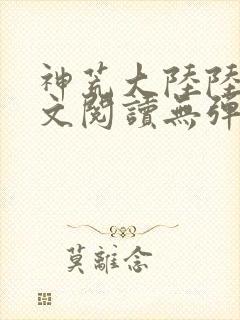 神荒大陸陸
文閱讀無彈
莫離念